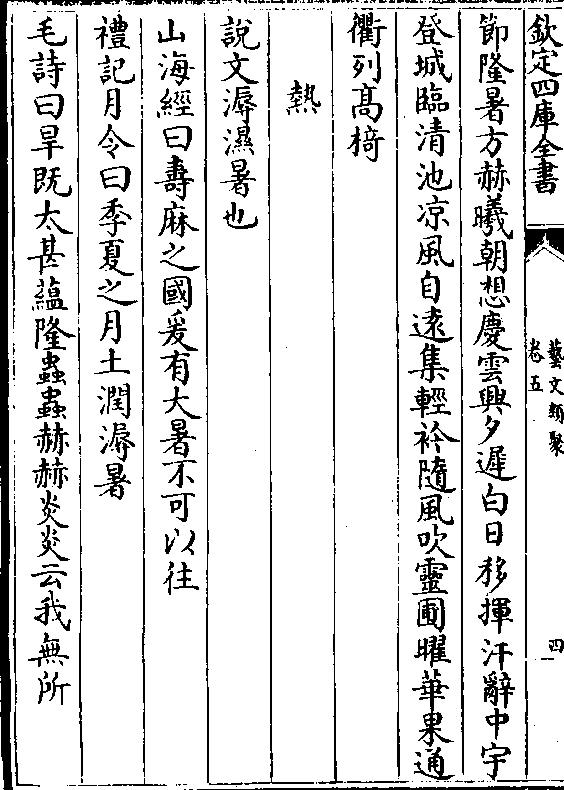 欽定四庫全書
藝文類聚
卷五
四
節隆暑方赫曦朝想慶雲興夕遲白日移揮汗辭中宇
登城臨清池凉風自遠集輕衿隨風吹靈圃曜華果通
衢列髙椅
熱
說文溽濕暑也
山海經曰壽麻之國爰有大暑不可以往
禮記月令曰季夏之月土潤溽暑
毛詩曰旱既太甚藴隆蟲蟲赫赫炎炎云我無所